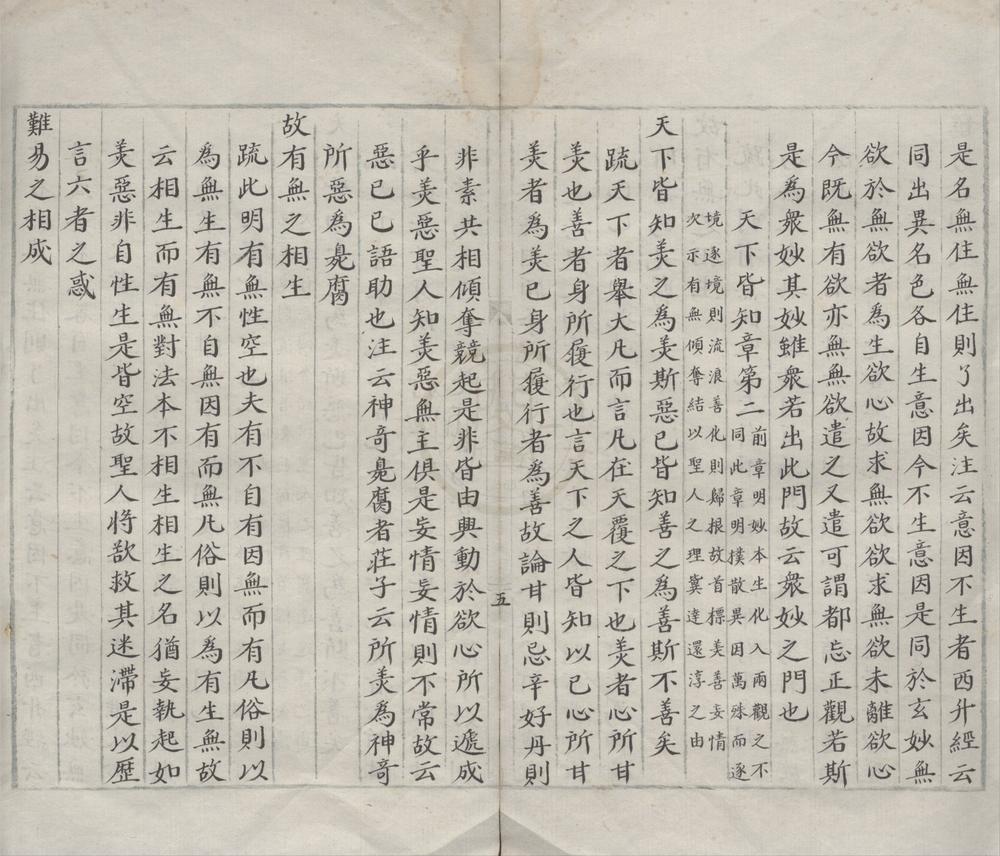 是名無住無住則了出矣注云意因不生者西升經云
同出異名色各自生意因今不生意因是同於玄妙無
欲於無欲者為生欲心故求無欲欲求無欲未離欲心
今既無有欲亦無無欲遣之又遣可謂都忘正觀若斯
是為衆妙其妙雖衆若出此門故云衆妙之門也
天下皆知章第二前章明妙本生化入兩觀之不
同此章明樸散異因萬殊而逐
境逐境則流浪善化則歸根故首標美善妄情
次示有無傾奪結以聖人之理冀達還淳之由
天下皆知美之為美斯惡已皆知善之為善斯不善矣
疏天下者舉大凡而言凡在天覆之下也美者心所甘
美也善者身所履行也言天下之人皆知以己心所甘
美者為美已身所履行者為善故論甘則忌辛好丹則
五
非素共相傾奪競起是非皆由興動於欲心所以遞成
乎美惡聖人知美惡無主俱是妄情妄情則不常故云
惡已已語助也注云神奇臭腐者莊子云所美為神奇
所惡為臭腐
故有無之相生
疏此明有無性空也夫有不自有因無而有凡俗則以
為無生有無不自無因有而無凡俗則以為有生無故
云相生而有無對法本不相生相生之名猶妄執起如
美惡非自性生是皆空故聖人將欲救其迷滯是以歷
言六者之惑
難易之相成